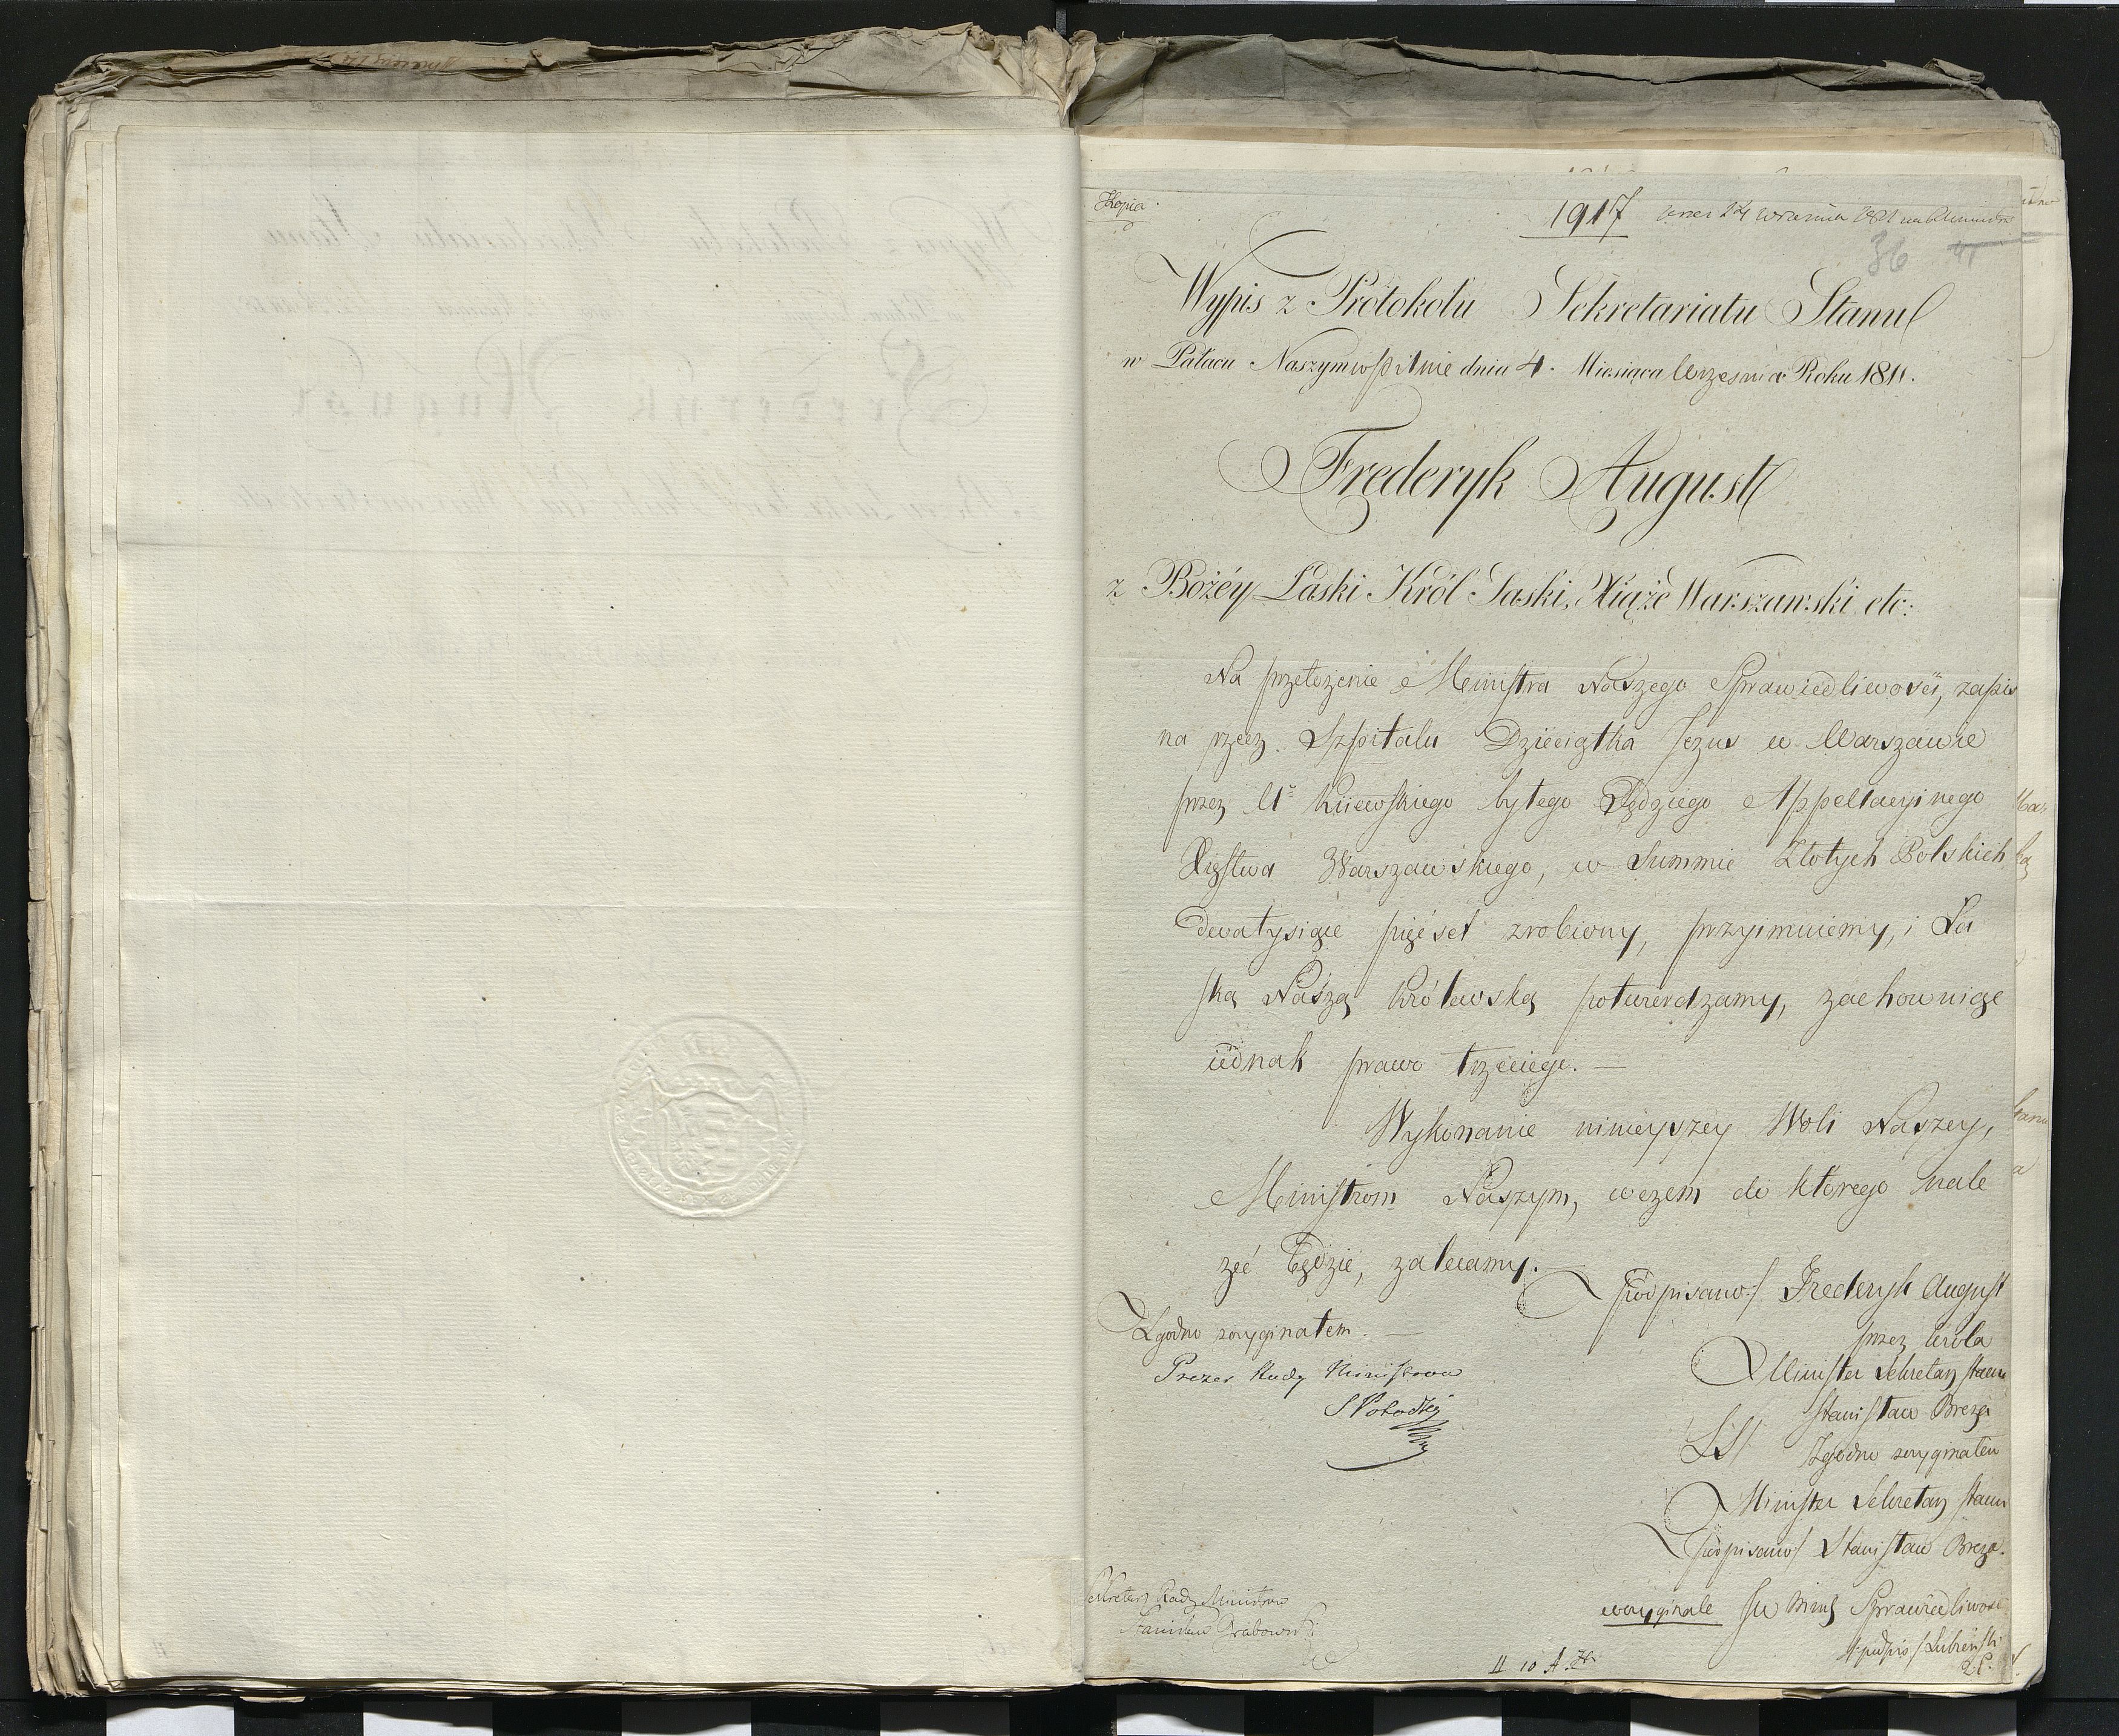 Kopia
1917
36
Wypis z Protokołu Sekretariatu Stanu
w Pałacu Naszym w Pilnie dnia 4. Miesiąca Września Roku 1811.
Frederyk August
z Bożéy Łaski Król Saski, Xiąże Warszawski etc:
Na przełożenie Ministra Naszego Sprawiedliwości, zapis
na rzecz Szpitalu Dzieciątka Jezus w Warszawie
przez Ur Kiiewskiego byłego Sędziego Appellacyinego
Xięstwa Warszawskiego, w Summie Złotych Polskich
dwatysiące pięćset zrobiony, przyimuiemy, i Ła
ską Naszą Królewską potwierdzamy, zachowuiąc
iednak prawo trzeciego. —
Wykonanie ninieyszey Woli Naszey,
Ministrom Naszym, wczem do którego nale
żéć będzie, zalecamy.
podpisano/ Frederyk August
przez Króla
Minister Sekretarz Stanu
Stanisław Breza
LS/ Zgodno zoryginałem
Minister Sekretarz Stanu
podpisano/ Stanisław Breza.
Zgodno zoryginałem. —
Prezes Rady Ministrów
S Potocki
woryginale Sprawiedliwości
podpis/ Łubieński
Sekretarz Rady Ministrow
Stanisław Grabowski